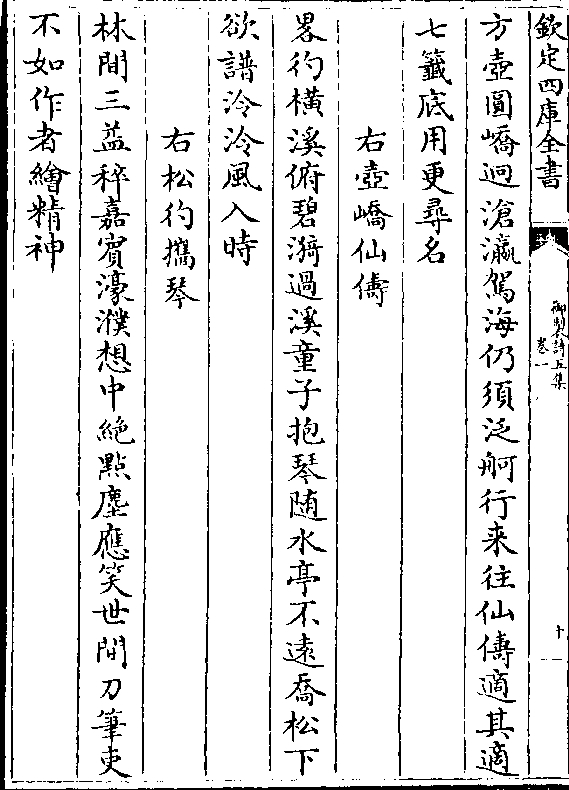 欽定四庫全書
御製詩五集
卷一
十
方壺圓嶠迥滄瀛駕海仍須泛舸行来往仙儔適其適
七籤底用更尋名
右壺嶠仙儔
畧彴橫溪俯碧漪過溪童子抱琴随水亭不遠喬松下
欲譜泠泠風入時
右松彴攜琴
林間三益稡嘉賓濠濮想中絶點塵應笑世間刀筆吏
不如作者繪精神